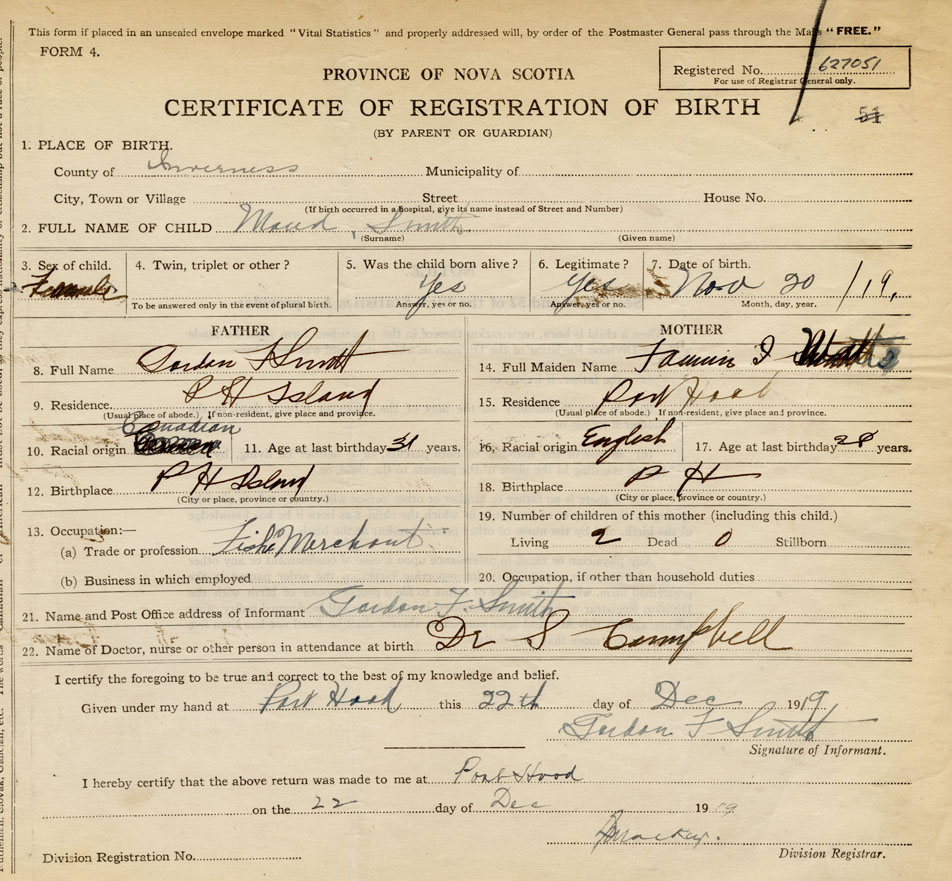 This form if placed in an unsealed envelope marked "Vital Statistics" and properly addressed will, by order of the Postmaster General pass through the Mails "FREE."
FORM 4.
Registered No. 627051
For use of Registrar General only.
PROVINCE OF NOVA SCOTIA
CERTIFICATE OF REGISTRATION OF BIRTH
51
(BY PARENT OR GUARDIAN)
1. PLACE OF BIRTH.
County of Inverness Municipality of
City, Town or Village Street House No.
(If birth occurred in a hospital, give its name instead of Street and Number)
2. FULL NAME OF CHILD Maud, Smith
(Surname) (Given name)
3. Sex of child. 4. Twin, triplet or other? 5. Was the child born alive? 6. Legitimate? 7. Date of birth.
Female Yes Yes Nov 20 /19.
To be answered only in the event of plural birth. Answer, yes or no. Answer, yes or no. Month, day, year.
FATHER
8. Full Name Gordon F Smith
9. Residence P H Island
(Usual place of abode.) If non-resident, give place and province.
Canadian
10. Racial origin 11. Age at last birthday 31 years.
12. Birthplace P H Island
(City or place, province or country.)
13. Occupation:—
(a) Trade or profession Fish Merchant
(b) Business in which employed
MOTHER
14. Full Maiden Name I
15. Residence Port Hood
(Usual place of abode.) If non-resident, give place and province.
16. Racial origin English 17. Age at last birthday 28 years.
18. Birthplace P H
(City or place, province or country.)
19. Number of children of this mother (including this child.)
Living 2 Dead 0 Stillborn
20. Occupation, if other than household duties
21. Name and Post Office address of Informant Gordon F. Smith
22. Name of Doctor, nurse or other person in attendance at birth Dr S Campbell
I certify the foregoing to be true and correct to the best of my knowledge and belief.
Given under my hand at Port Hood this 22th day of Dec 1919
Gordon F Smith
Signature of Informant.
I hereby certify that the above return was made to me at Port Hood
on the 22 day of Dec 1919
Division Registration No.
Division Registrar.